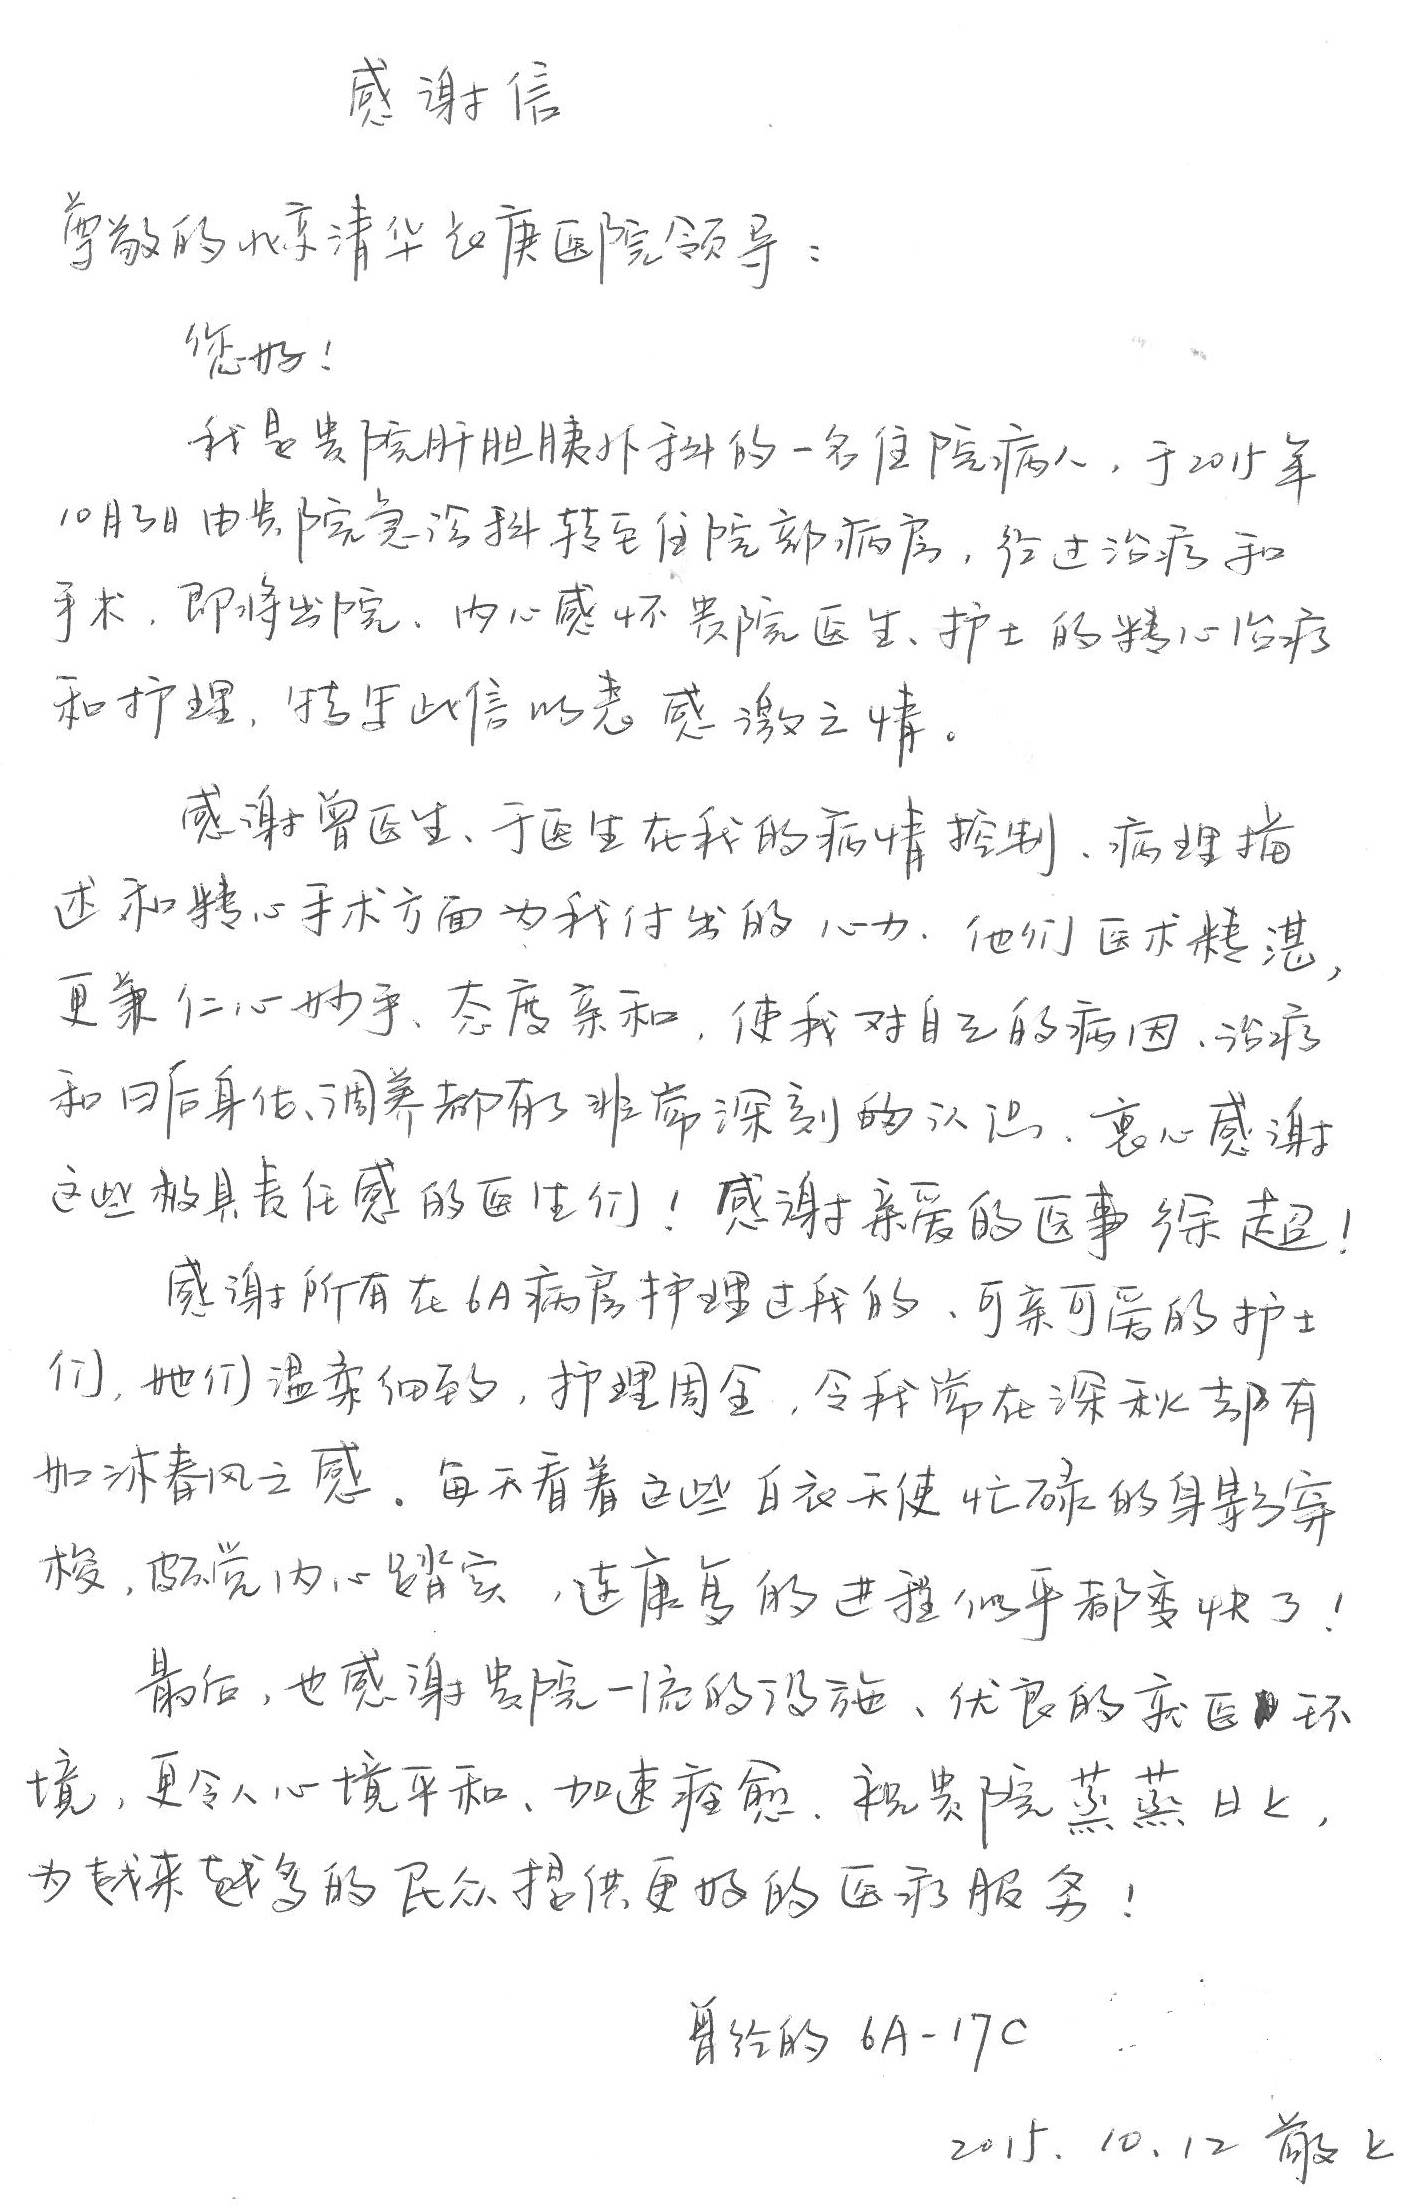 感谢信
尊敬的北京清华长庚医院领导：
您好！
我是贵院肝胆胰外科的一名住院病人，于2015年
10月3日由贵院急诊科转至住院部病房，经过治疗和
手术，即将出院、内心感怀贵院医生、护士的精心治疗
和护理，特写此信以表感激之情。
感谢曾医生、于医生在我的病情控制、病理描
述和精心手术方面为我付出的心力、他们医术精湛，
更兼仁心妙手、态度亲和，使我对自己的病因、治疗
和日后身体、调养都有了非常深刻的认识、衷心感谢
这些极具责任感的医生们！感谢亲爱的医事徐超！
感谢所有在6A病房护理过我的、可亲可爱的护士
们，她们温柔细致，护理周全，令我常在深秋却有
如沐春风之感。每天看着这些白衣天使忙碌的身影穿
梭，颇觉内心踏实，连康复的进程似乎都变快了！
最后，也感谢贵院一流的设施、优良的就医环
境，更令人心境平和、加速痊愈、祝贵院蒸蒸日上，
为越来越多的民众提供更好的医疗服务！
曾经的 6A-17C
2015.10.12 敬上